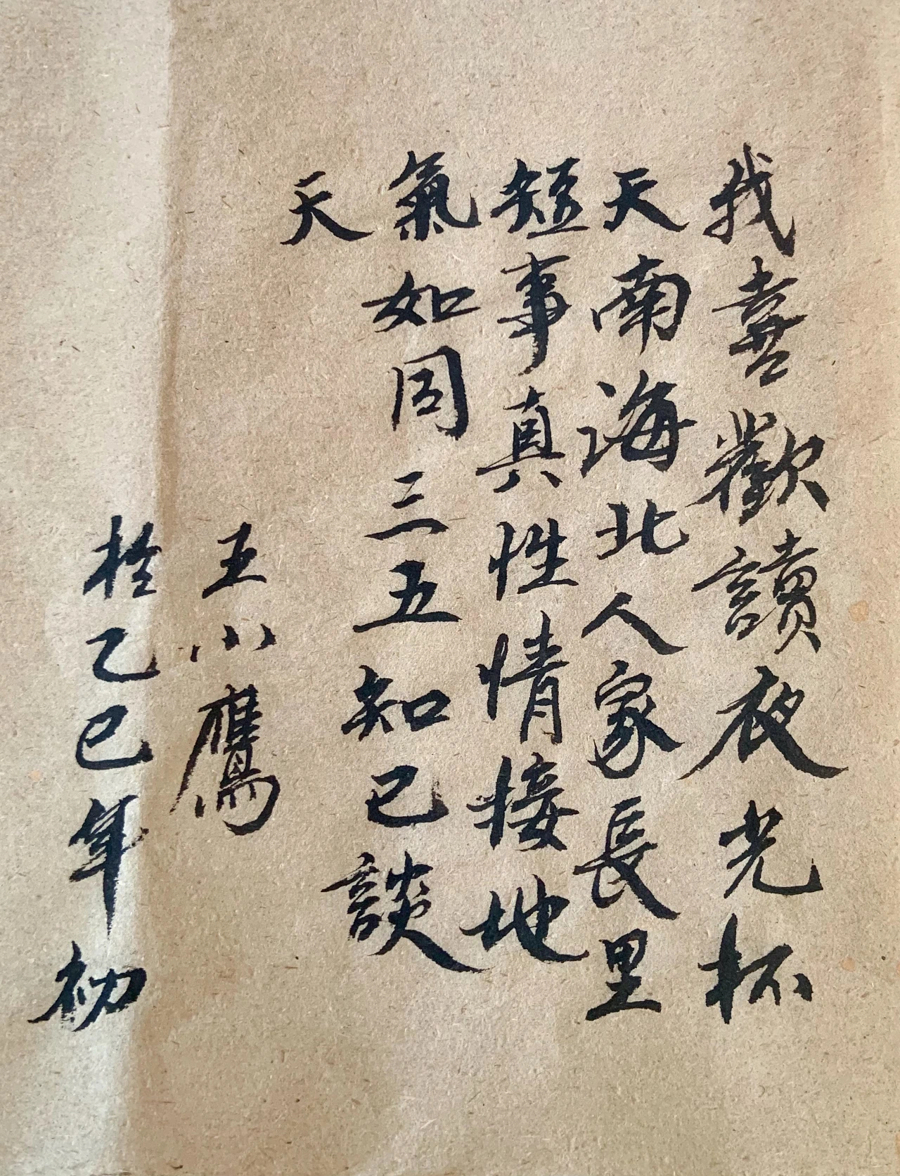 我喜歡讀夜光杯
天南海北人家長里
短事真性情接地
氣如同三五知己談
天
王小鷹
於乙巳年初